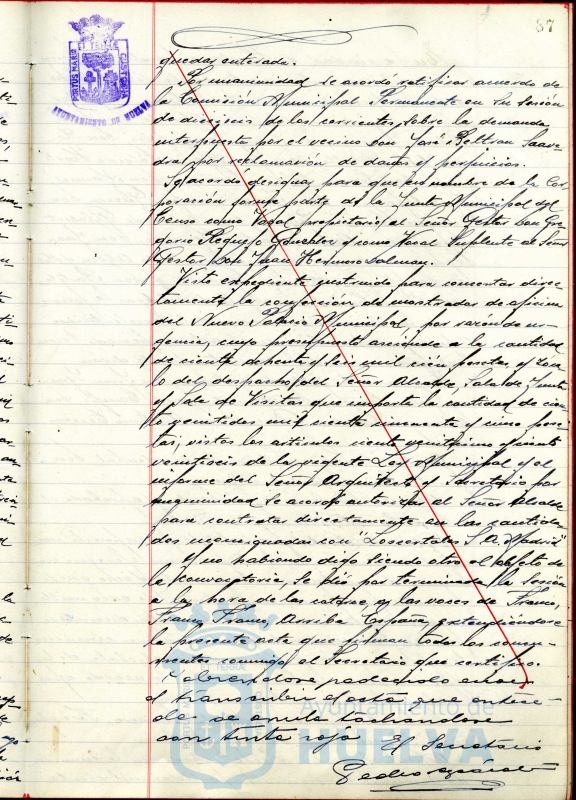 87
PORTUS MARIS ET TERRE CUSTODIA
AYUNTAMIENTO DE HUELVA
quedar enterada.
Por unanimidad se acordó ratificar acuerdo de
la Comisión Municipal Permanente en su sesión
de dieciseis de los corrientes, sobre la demanda
interpuesta por el vecino Don José Beltran Saave-
dra, por reclamación de daños y perjuicios.
Se acordó designar para que en nombre de la Cor-
poración forme parte de la Junta Municipal del
Censo como Vocal propietario al Señor Gestor Don Gre-
gorio Requejo Gonzalez y como Vocal Suplente al Señor
Gestor Don Juan Hermoso Dolman.
Visto expediente instruido para concertar direc-
tamente la confección de mostrador de oficina
del Nuevo Palacio Municipal, por razón de ur-
gencia, cuyo presupuesto asciende a la cantidad
de ciento setenta y seis mil cien pesetas, y
lo del despacho del Señor Alcalde, Sala de Junta
y Sala de Visitas que importa la cantidad de cien-
to veintidos mil ciento cincuenta y cinco pese-
tas; vistos los articulos ciento veintiuno y ciento
veintiseis de la vigente Ley Municipal y el
informe del Señor Arquitecto y Secretario por
unanimidad se acordó autorizar al Señor Alcalde
para contratar directamente en las cantida-
des consignadas con S. A. Madrid"
Y no habiendo siendo otro el objeto de
la convocatoria, se dió por terminada la sesión
a la hora de las catorce, a las voces de Franco,
Franco, Franco, Arriba España, extendiendose
la presente acta que firman todos los concu-
rrentes conmigo, el Secretario que certifico.
padecido error
al transcribir el acta que antece-
de se anula tachandose
con tinta roja El Secretario
Pedro
Ayuntamiento de
HUELVA